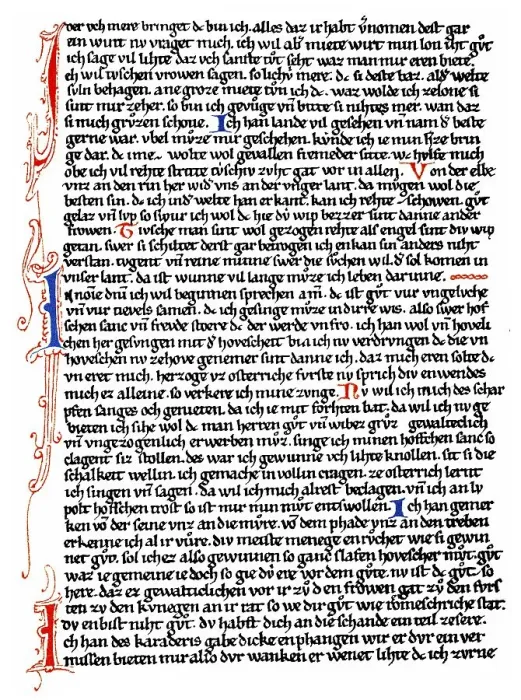 Iver vch mere bringet dc bin ich. alles daz ir habt v̊nomen dest gar
ein wint nv vraget mich. ich wil ab' miete wirt min lon iht gv̊t
ich sage vil lihte daz vch sanfte tv̊t seht waz man mir eren biete.
ich wil tvschen vrowen sagen. solichv mere. dc si deste baz. al d' welte
svln behagen. ane groze miete tv̊n ich dc. waz wolde ich ze lone si
sint mir ze her. so bin ich gevv̊ge vn̄ bitte si nihtes mer. wan daz
si mich grv̊zen schone. Ich han lande vil gesehen vn̄ nam d' beste
gerne war. vbel mv̊ze mir geschehen. kv̊nde ich ie min h'ze brin
ge dar. dc ime wolte wol gevallen fremeder sitte. wc hvlfe mich
obe ich vil rehte stritte tvschiv zvht gat vor in allen. Von der elbe
vnz an den rin her wid' vns an der vnger lant. da mvgen wol die
besten sin. dc ich in d' welte han erkant. kan ich rehte schowen. gv̊t
gelaz vn̄ lip so swur ich wol dc hie dv wip bezzer sint danne ander
frowen. Tivsche man sint wol gezogen rehte als engel sint div wip
getan. swer si schiltet derst gar betrogen ich enkan sin anders niht
verstan. tvgent vn̄ reine minne swer die svchen wil. d' sol komen in
vnser lant. da ist wunne vil lange mv̊ze ich leben dar inne.
In nomine dn̄i ich wil beginnen sprechen am̄. dc ist gv̊t vur vngelvche
vn̄ vur tievels samen. dc ich gesinge mv̊ze in dirre wis. also swer hof
schen sanc vn̄ frevde stoere dc der werde vnfro. ich han wol vn̄ hoveli
chen her gesvngen mit d' hovescheit bin ich nv verdrvngen dc die vn
hoveschen nv ze hove genemer sint danne ich. daz mich eren solte dc
vn eret mich. herzoge vz osterriche fvrste nv sprich div en wendes
mich ez alleine. so verkere ich mine zvnge. Nv wil ich mich des schar
pfen sanges och genieten. da ich ie mit forhten bat. da wil ich nv ge
bieten ich sihe wol dc man herren gv̊t vn̄ wibes grv̊z gewalteclich
vn̄ vngezogenlich erwerben mv̊z. singe ich minen hofschen sanc so
clagent siz stollen. des war ich gewinne vch lihte knollen. sit si die
schalkeit wellin. ich gemache in vollin cragen. ze osterich lernt
ich singen vn̄ sagen. da wil ich mich alrest beclagen. vn̄ ich an lv
polt hofschen trost so ist mir min mv̊t entswollen. Ich han gemer
ken vo der seine vnz an die mv̊re. vo dem phade vnz an den treben
erkenne ich al ir vv̊re. div meiste menege enrv̊chet wie si gewin
net gv̊t. sol ich ez also gewinnen so ganc slafen hovescher mv̊t. gv̊t
waz ie gemeine ie doch so gie dv ere vor dem gv̊te. nv ist dc gv̊t so
here. daz ez gewalticlichen vor ir zv̊ den frowen gat zv̊ den fvrs
ten zv den kvnegen an ir rat so we dir gv̊t wie romeschriche stat.
dv en bist niht gv̊t. dv habst dich an die schande ein teil ze sere.
Ich han des karaders gabe dicke enphangen wir er dvr ein ver
missen bieten mir also dvr wanken er wenet lihte dc ich zvrne